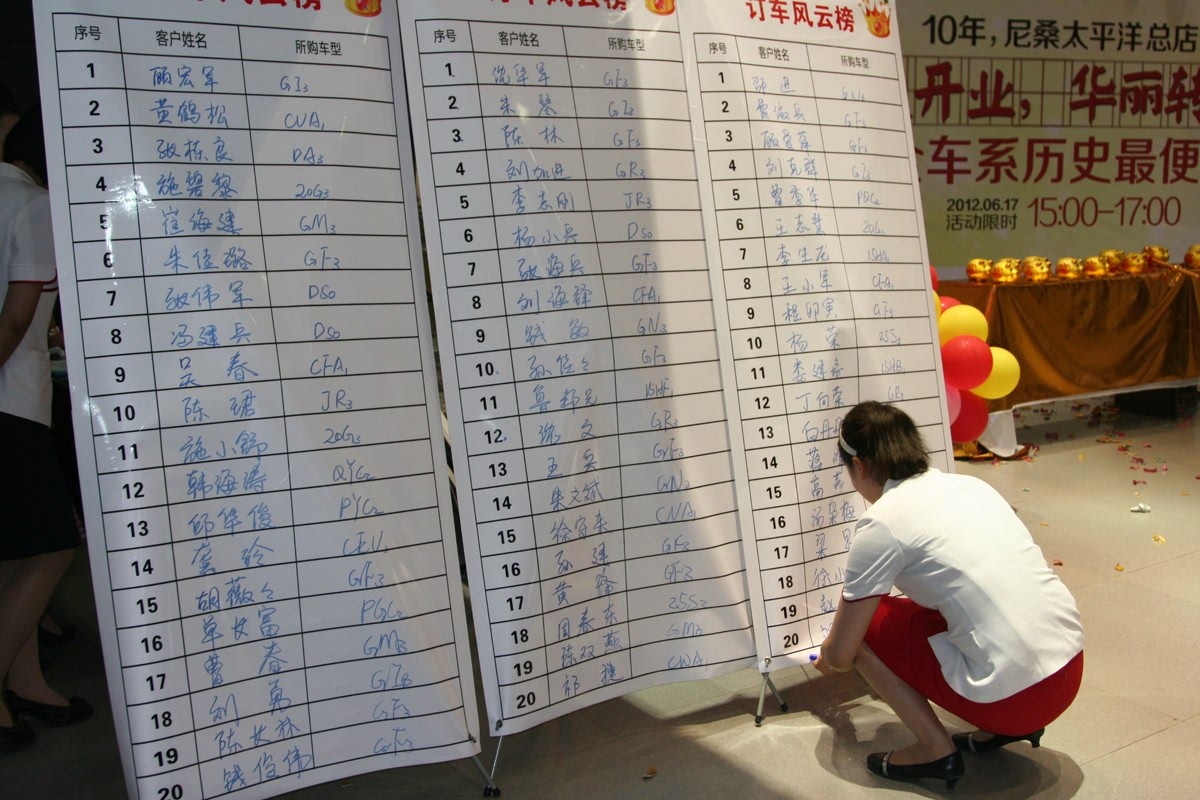 订车风云榜
序号 客户姓名 所购车型
1 GI3
2 黄鹤松 CVA1
3 张栋良 DA3
4 施碧黎 20G3
5 崔海建 GM3
6 朱佳璐 GF3
7 张伟军 DS0
8 冯建兵 DS0
9 吴春 CFA1
10 陈珺 JR3
11 施小舒 20G3
12 韩海涛 QYC2
13 邱华俊 PYC2
14 龚玲 CEV1
15 胡薇々 GF3
16 单长富 PGC2
17 曹春 GM3
18 刘勇
19 陈长林 GF3
20 钱俊伟 GF3
订车风云榜
序号 客户姓名 所购车型
1 GF3
2 朱琴 GI3
3 陈林 GF3
4 GR3
5 李志刚 JR3
6 杨小兵 DS0
7 张海兵 GF3
8 刘海锋 CFA1
9 钱敏 GN3
10 孙佳々 GF2
11 鲁邦昆 15HF1
12 张文 GR3
13 王兵 GF3
14 朱文斌 GN3
15 徐家东 CNA1
16 孙建 GF3
17 黄锋 GF3
18 周春东 25S2
19 陈双燕 GM3
20 祁捷 CWA
订车风云榜
序号 客户姓名 所购车型
1 邵进 GN3
2 GF3
3 GF3
4 刘克群 GI3
5 曾季华 PGC2
6 王志慧 20G3
7 李生龙 15HA
8 王小军 CFA1
9 程卯寅 GF3
10 杨荣 25S2
11 娄建磊 15HB
12 丁向荣 GR3
13
14
15
16
17
18 徐小
19
20
10年，尼桑太平洋总店
开业，华丽转
车系历史最便
2012.06.17
活动限时 15:00-17:00